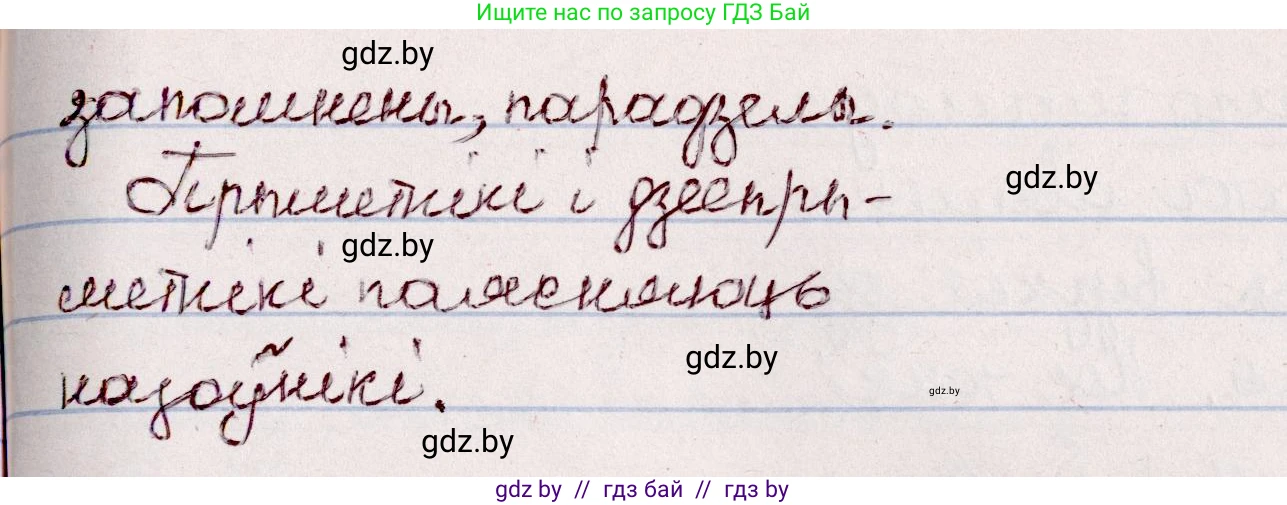 Ищите нас по запросу ГДЗ Бай
gdz.by
запомнены, парадзелы.
Прыметнікі і дзеепры-
gdz.by
gdz.by
метнікі паясняюць
gdz.by
назоўнікі.
gdz.by
gdz.by
gdz by // гдз бай // гдз by